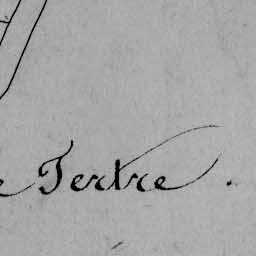 e Tertre.